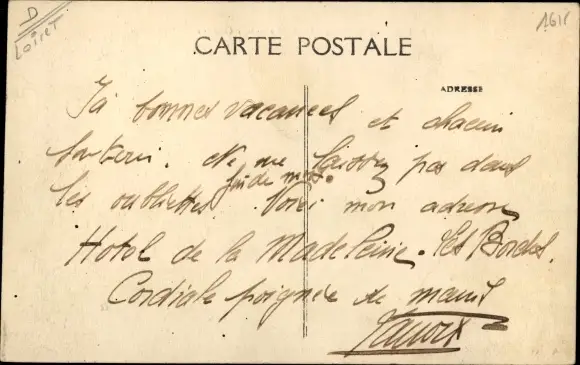 D
Loiret
1615
CARTE POSTALE
ADRESSE
bonnes vacances et chacun
Ne me laissez pas dans
les oubliettes. Voici mon adresse
Hotel de la Madeleine. Les Bordes.
Cordiale poignée de main